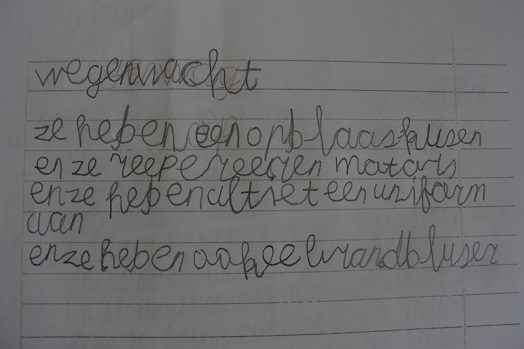 wegenwacht
ze heben een opblaaskusen
en ze reepereeren motors
en ze heben altiet een uniform
aan
en ze heben ook eel brandbluser